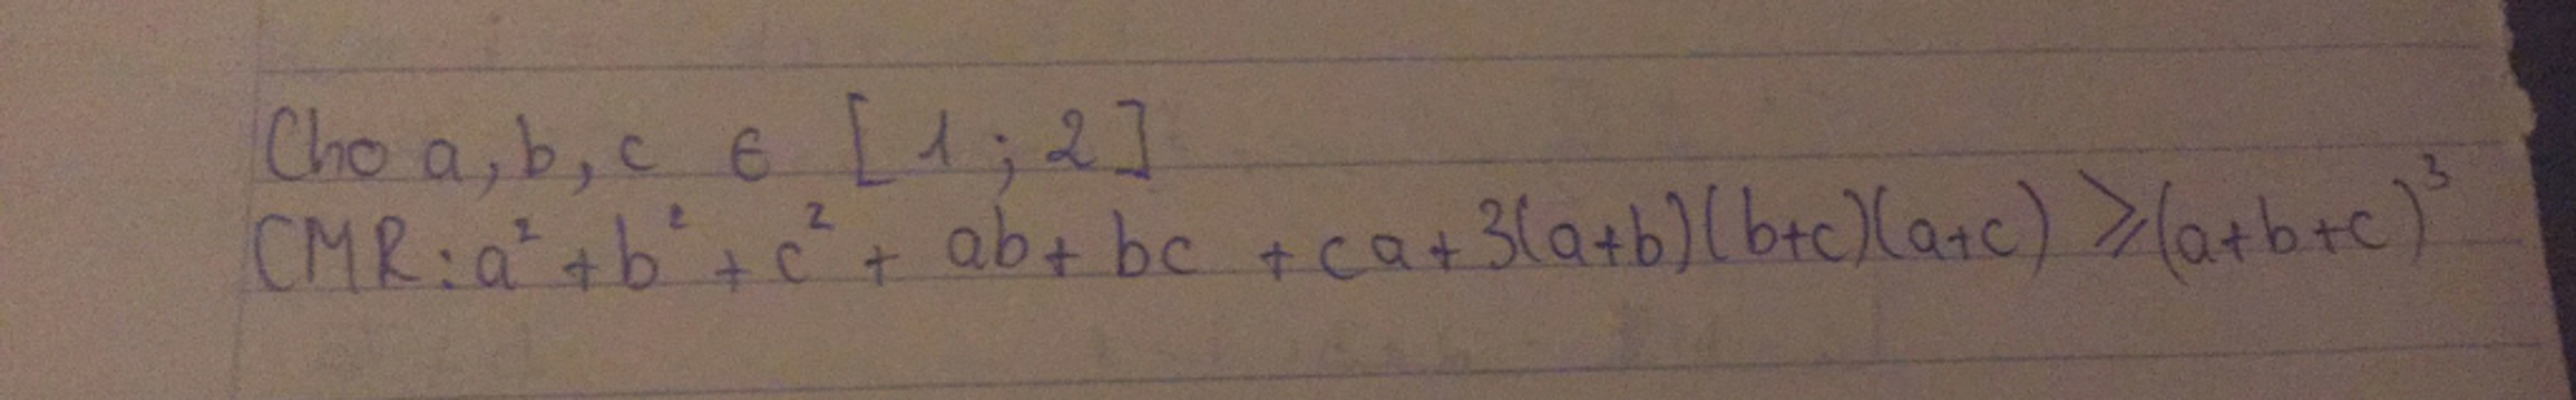 Cho a, b, c ∈ [1; 2]
CMR: a² + b² + c² + ab + bc + ca + 3(a+b)(b+c)(a+c) ⩾ (a+b+c)³